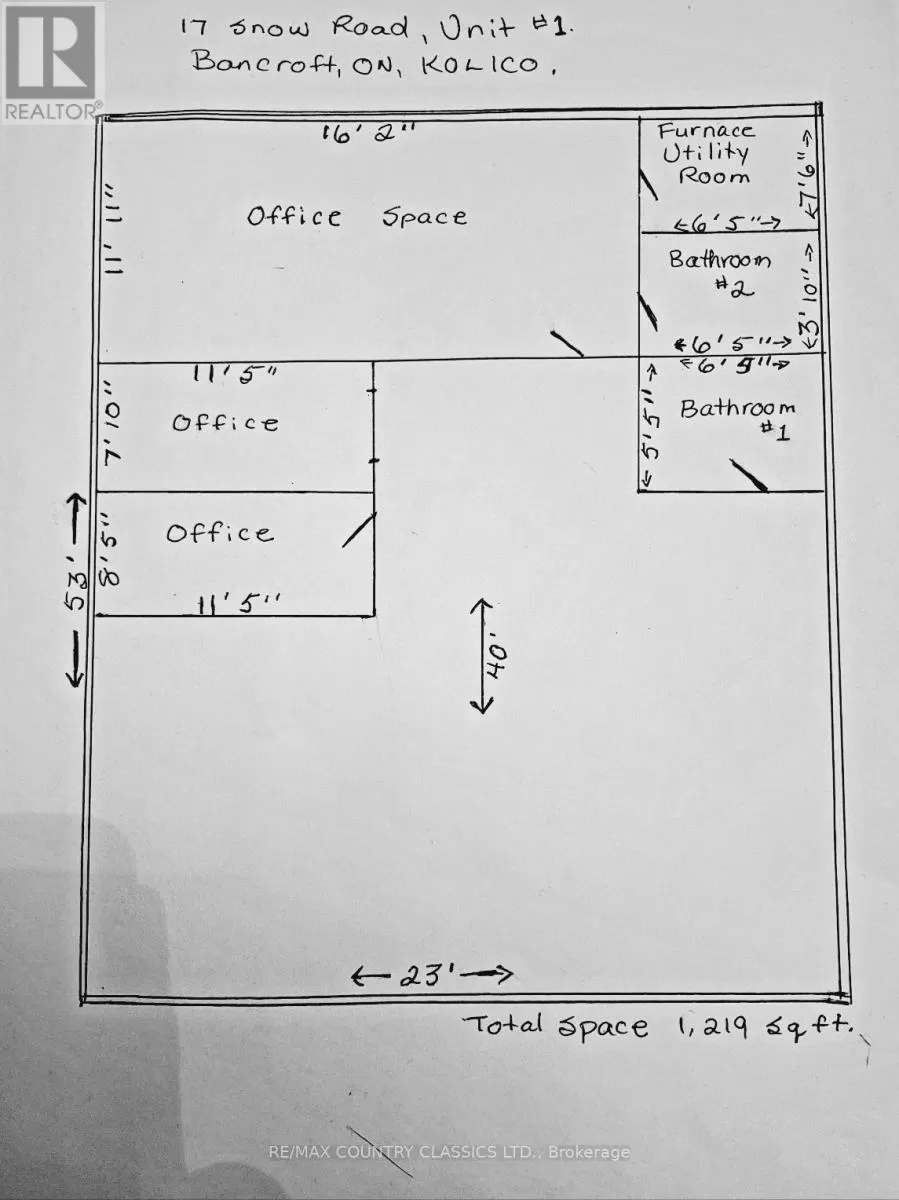 17 Snow Road, Unit #1.
Bancroft, ON, K0L1C0.
REALTOR®
16' 2"
Furnace
Utility
Room
7'6"
11' 11"
Office Space
6' 5"
Bathroom
#2
3' 10"
6' 5"
6' 5"
11' 5"
7' 10"
Office
5' 5"
Bathroom
#1
Office
8' 5"
53'
11' 5"
40'
23'
Total Space 1,219 sqft.
RE/MAX COUNTRY CLASSICS LTD., Brokerage